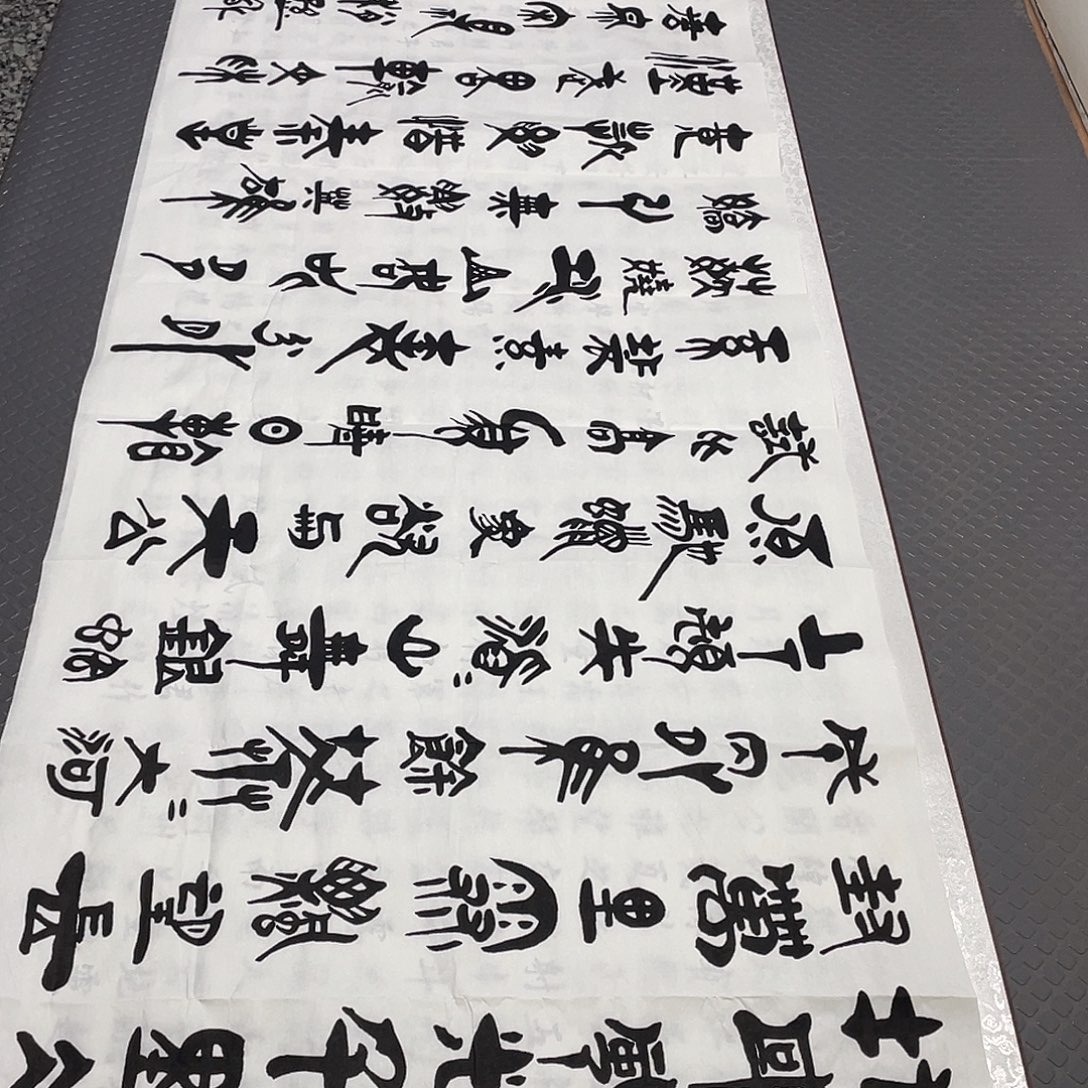 北國風光千里冰
封萬里雪飄望長
城內外惟餘莽〻大河
上下頓失滔〻山舞銀蛇
原馳蠟象欲與天公
試比高須晴日看
紅裝素裹分外
妖嬈江山如此多
嬌引無數英雄
競折腰惜秦皇
漢武略輸文采
唐宗宋祖稍遜